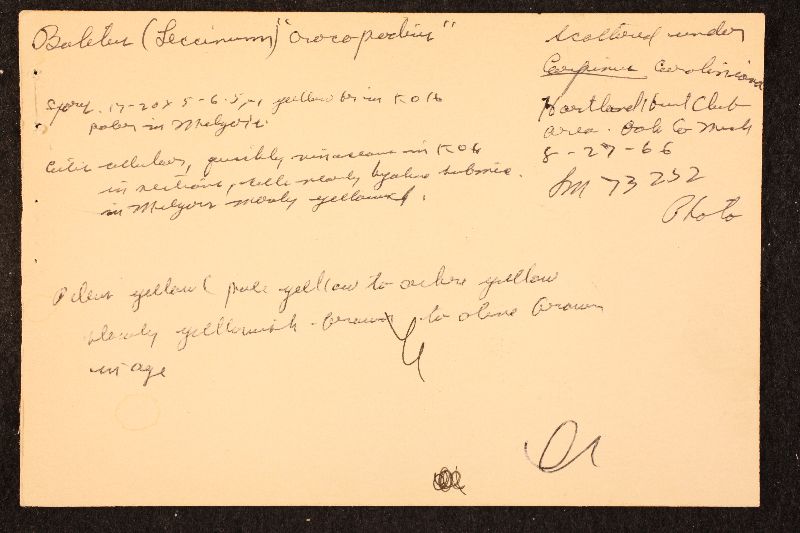 Boletus (Leccinum) "crocopodius"
Spores 17-20 x 5-6.5 μ, yellow br in KOH
paler in Melzer's.
Cutis cellular, possibly vinaceous in KOH
in sections, cells nearly hyaline
in Melzer's merely yellowish.
Pileus yellow pale yellow to ochre yellow
slowly yellowish-brown to olive brown
in age
scattered under
Carpinus caroliniana
Hartland Hunt Club
area. Oak Co Mich
8-27-66
SM 73232
Photo